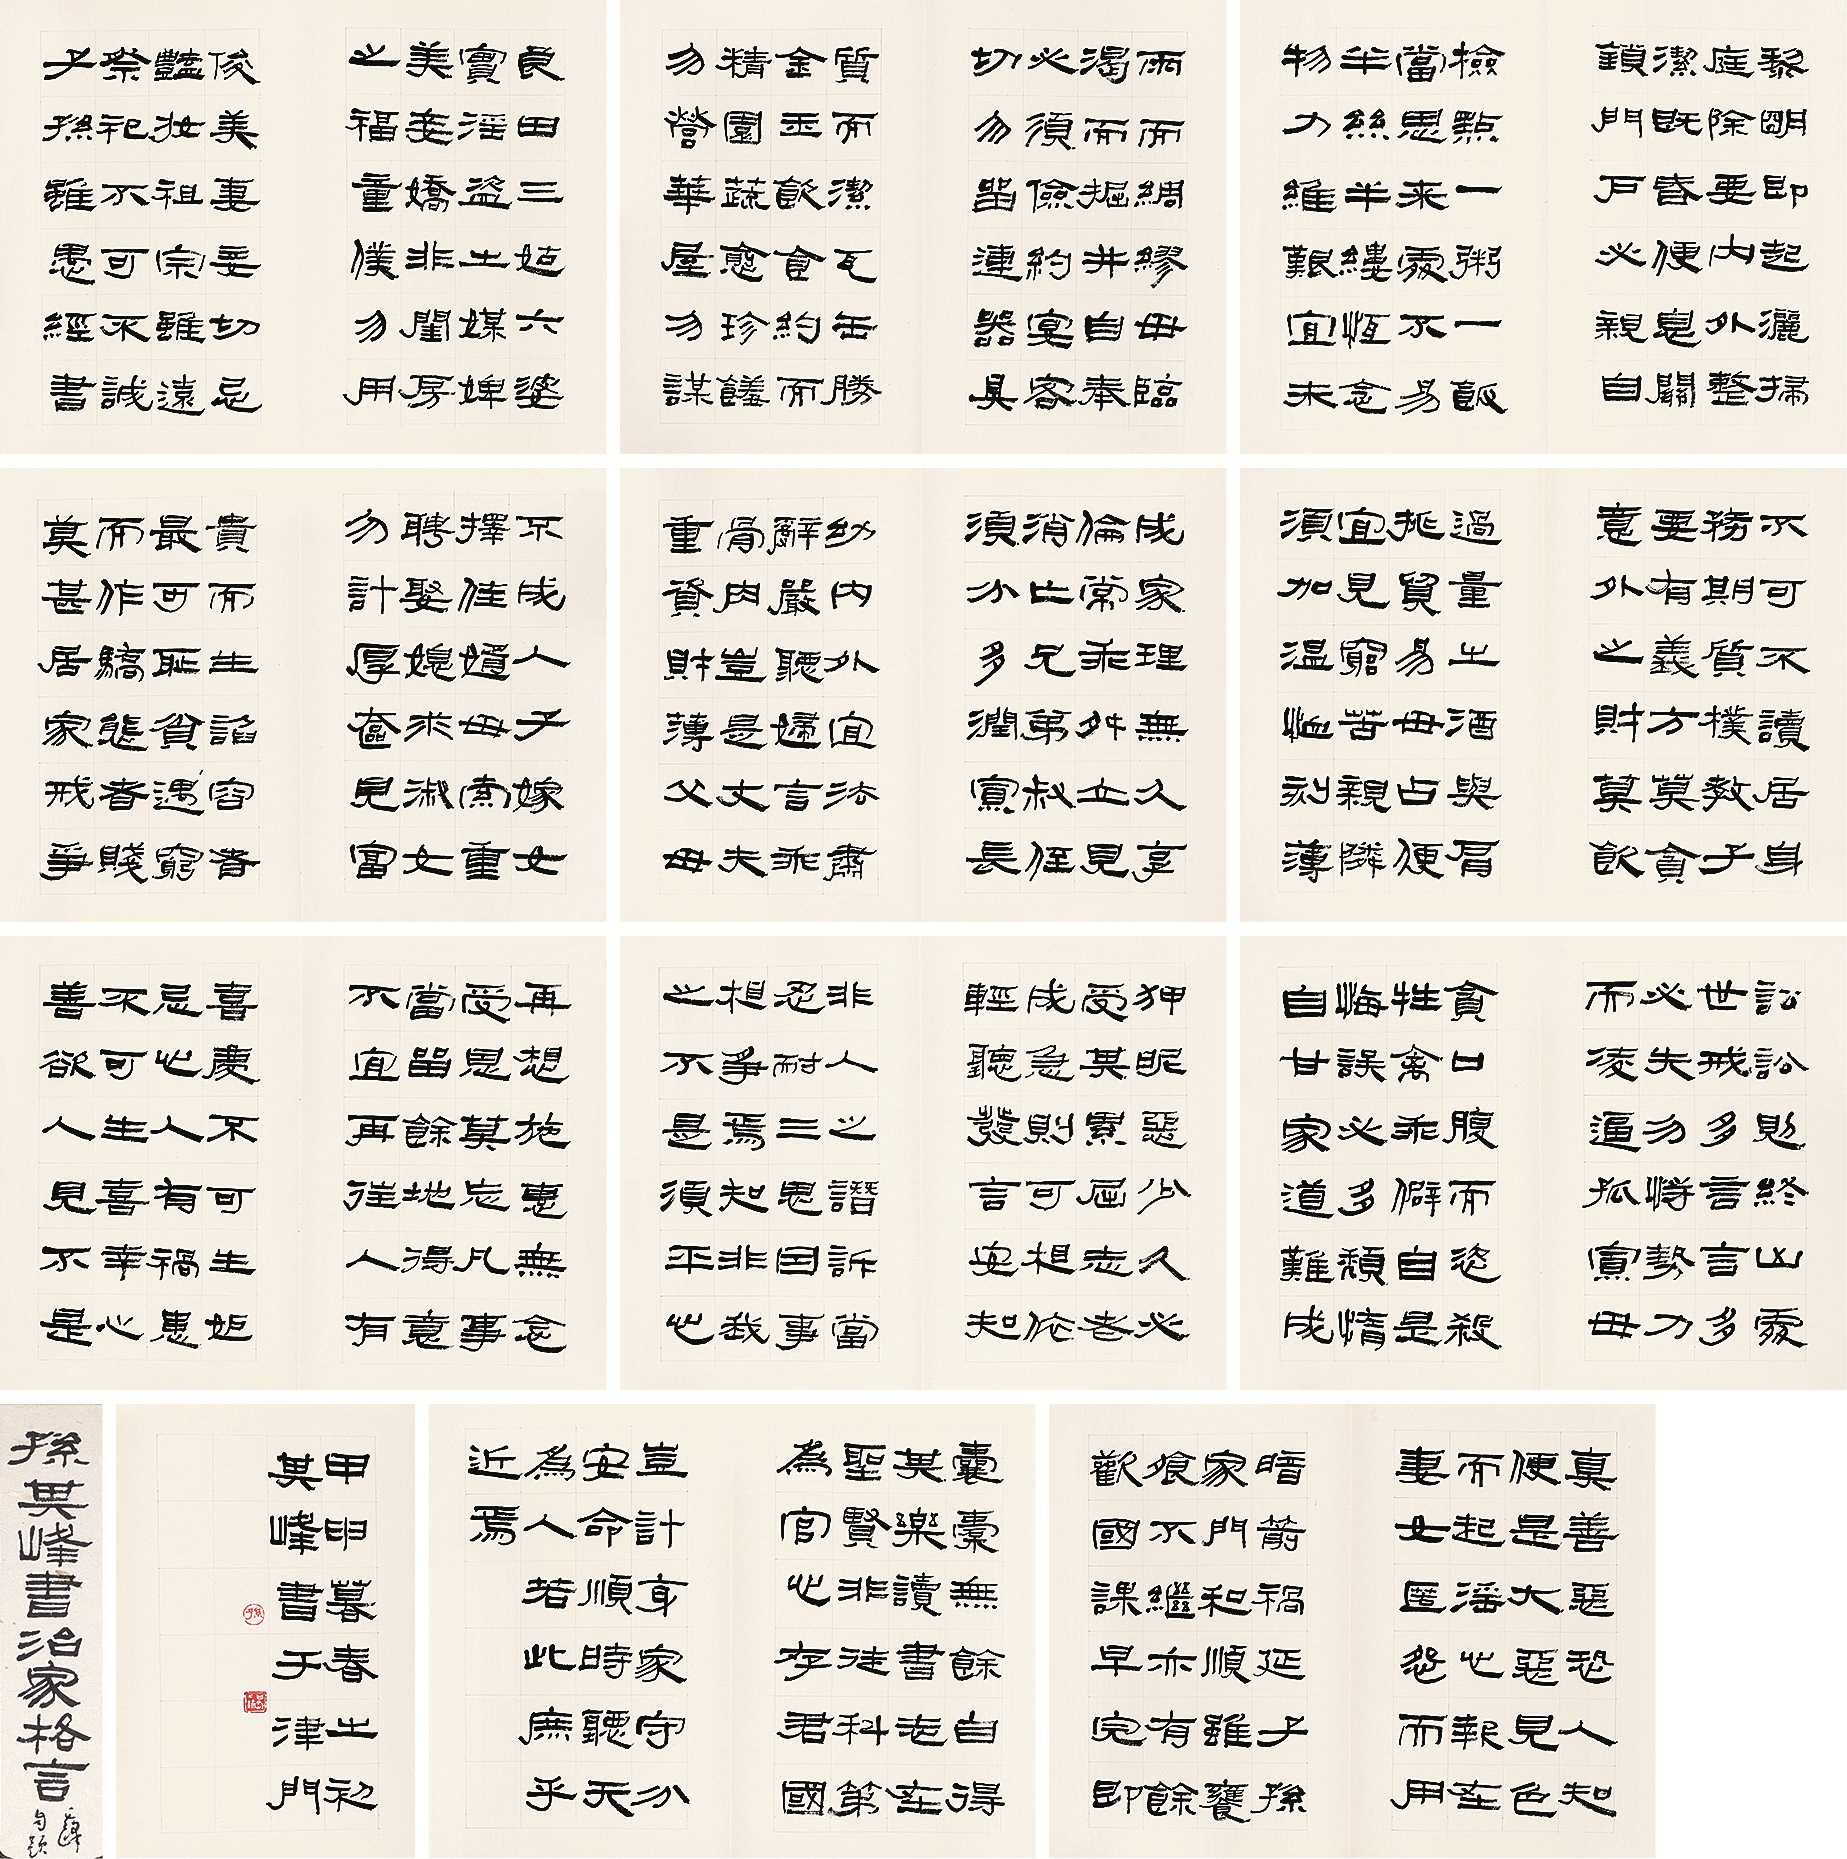 黎明即起灑掃
庭除要内外整
潔既昏便息關
鎖門戶必親自
檢點一粥一飯
當思来處不易
半絲半縷恆念
物力維艱宜未
雨而綢繆毋臨
渴而掘井自奉
必須儉約宴客
切勿留連器具
質而潔瓦缶勝
金玉飲食約而
精園蔬愈珍饈
勿營華屋勿謀
良田三姑六婆
實淫盜之媒婢
美妾嬌非閨房
之福童僕勿用
俊美妻妾切忌
豔妝祖宗雖遠
祭祀不可不誠
子孫雖愚經書
不可不讀居身
務期質樸教子
要有義方莫貪
意外之財莫飲
過量之酒與肩
挑貿易毋占便
宜見窮苦親隣
須加温恤刻薄
成家理無久享
倫常乖舛立見
消亡兄弟叔侄
須分多潤寡長
幼内外宜法肅
辭嚴聽婦言乖
骨肉豈是丈夫
重資財薄父母
不成人子嫁女
擇佳婿毋索重
聘娶媳求淑女
勿計厚奩見富
貴而生諂容者
最可恥貧遇窮
而作驕態者賤
莫甚居家戒爭
訟訟則終凶處
世戒多言言多
必失勿恃勢力
而凌逼孤寡毋
貪口腹而恣殺
牲禽乖僻自是
悔誤必多頹惰
自甘家道難成
狎昵惡少久必
受其累屈志老
成急則可相依
輕聽發言安知
非人之譖訴當
忍耐三思因事
相爭焉知非我
之不是須平心
再想施惠無念
受恩莫忘凡事
當留餘地得意
不宜再往人有
喜慶不可生妒
忌心人有禍患
不可生喜幸心
善欲人見不是
真善惡恐人知
便是大惡見色
而起淫心報在
妻女匿怨而用
暗箭禍延子孫
家門和順雖饔
飧不繼亦有餘
歡國課早完即
囊橐無餘自得
其樂讀書志在
聖賢非徒科第
為官心存君國
豈計身家守分
安命順時聽天
為人若此庶乎
近焉
甲申暮春之初
其峰書于津門
孫其峰書治家格言
其峰
自題